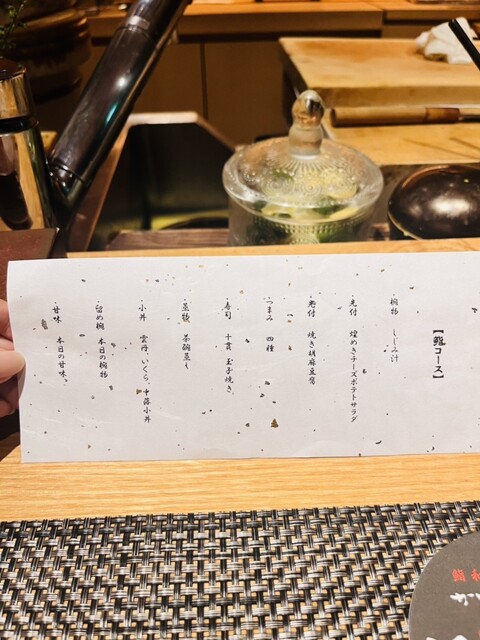 【鮨コース】
椀物 しじみ汁
先付 燻めきチーズポテトサラダ
先付 焼き胡麻豆腐
つまみ 四種
寿司 十貫 玉子焼き
蒸物 茶碗蒸し
小丼 雲丹、いくら、中落小丼
留め椀 本日の椀物
甘味 本日の甘味。
鮨